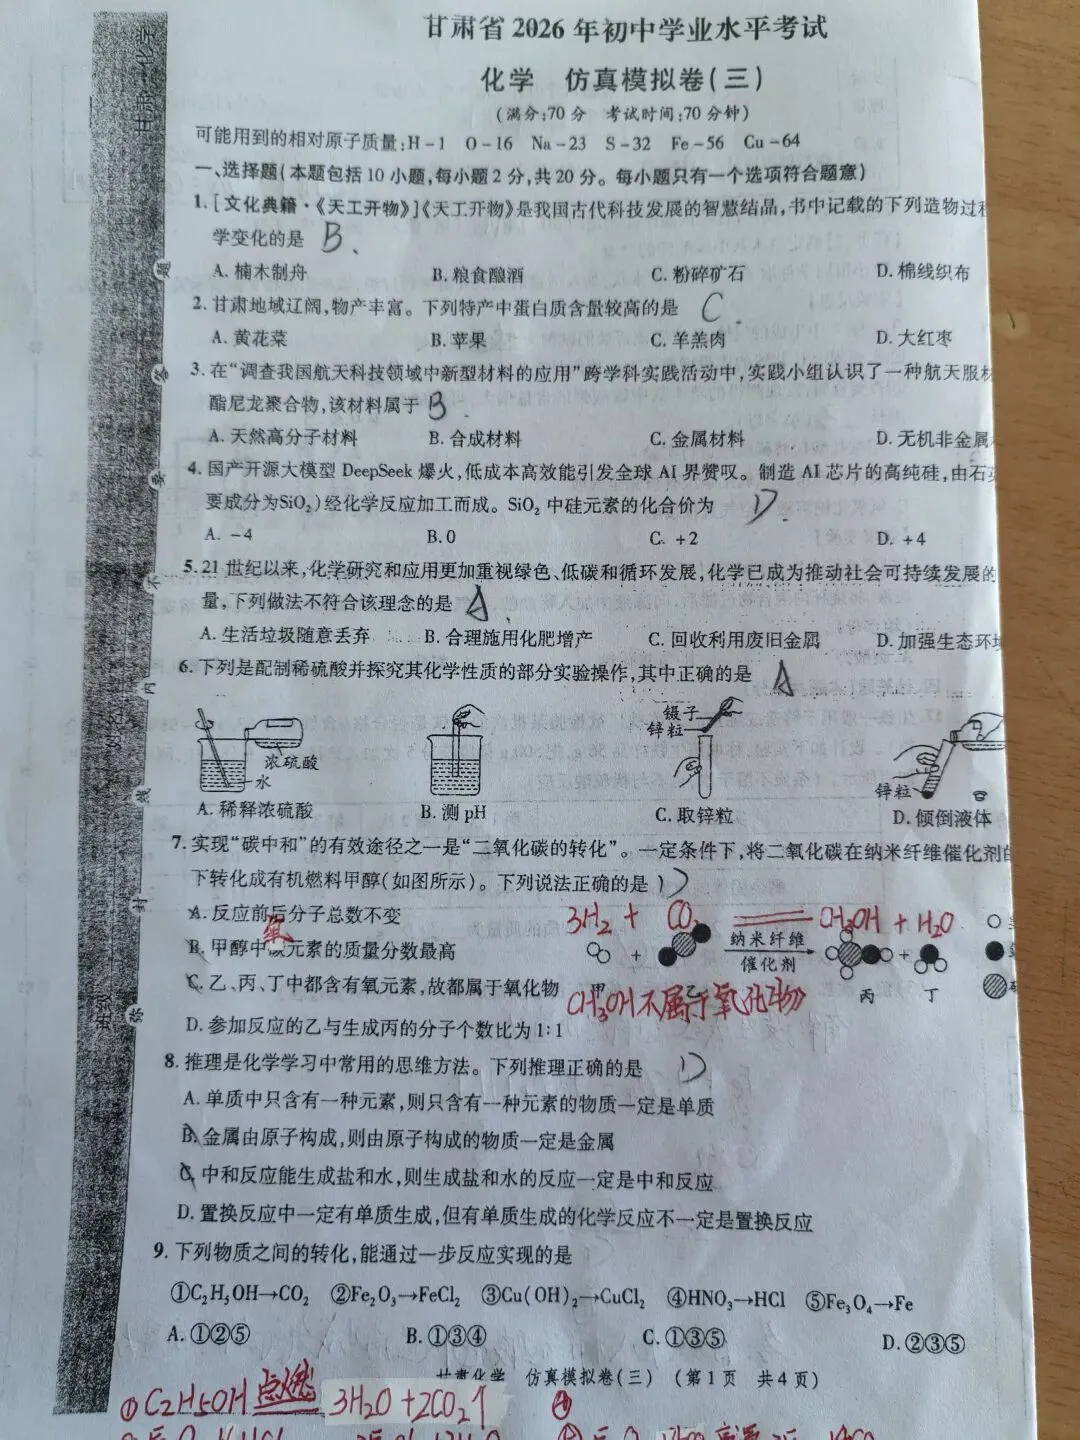 甘肃省2026年初中学业水平考试
化学 仿真模拟卷(三)
(满分:70分 考试时间:70分钟)
可能用到的相对原子质量:H-1 O-16 Na-23 S-32 Fe-56 Cu-64
一、选择题(本题包括10小题,每小题2分,共20分。每小题只有一个选项符合题意)
1.[文化典籍·《天工开物》]《天工开物》是我国古代科技发展的智慧结晶,书中记载的下列造物过程
学变化的是 B、
A.楠木制舟 B.粮食酿酒 C.粉碎矿石 D.棉线织布
2.甘肃地域辽阔,物产丰富。下列特产中蛋白质含量较高的是 C.
A.黄花菜 B.苹果 C.羊羔肉 D.大红枣
3.在“调查我国航天科技领域中新型材料的应用”跨学科实践活动中,实践小组认识了一种航天服材
酯尼龙聚合物,该材料属于 B.
A.天然高分子材料 B.合成材料 C.金属材料 D.无机非金属
4.国产开源大模型DeepSeek爆火,低成本高效能引发全球AI界赞叹。制造AI芯片的高纯硅,由石英
要成分为SiO₂)经化学反应加工而成。SiO₂中硅元素的化合价为 D.
A.-4 B.0 C.+2 D.+4
5.21世纪以来,化学研究和应用更加重视绿色、低碳和循环发展,化学已成为推动社会可持续发展的
量,下列做法不符合该理念的是 A.
A.生活垃圾随意丢弃 B.合理施用化肥增产 C.回收利用废旧金属 D.加强生态环境
6.下列是配制稀硫酸并探究其化学性质的部分实验操作,其中正确的是 A
浓硫酸
水
镊子
锌粒
锌粒
A.稀释浓硫酸 B.测pH C.取锌粒 D.倾倒液体
7.实现“碳中和”的有效途径之一是“二氧化碳的转化”。一定条件下,将二氧化碳在纳米纤维催化剂的
下转化成有机燃料甲醇(如图所示)。下列说法正确的是 D
A.反应前后分子总数不变
氧
B.甲醇中碳元素的质量分数最高
C.乙、丙、丁中都含有氧元素,故都属于氧化物
D.参加反应的乙与生成丙的分子个数比为1:1
3H₂ + CO₂ ═ CH₃OH + H₂O
+ 纳米纤维 催化剂 +
甲 乙 丙 丁
CH₃OH不属于氧化物
8.推理是化学学习中常用的思维方法。下列推理正确的是 D
A.单质中只含有一种元素,则只含有一种元素的物质一定是单质
B.金属由原子构成,则由原子构成的物质一定是金属
C.中和反应能生成盐和水,则生成盐和水的反应一定是中和反应
D.置换反应中一定有单质生成,但有单质生成的化学反应不一定是置换反应
9.下列物质之间的转化,能通过一步反应实现的是
①C₂H₅OH→CO₂ ②Fe₂O₃→FeCl₂ ③Cu(OH)₂→CuCl₂ ④HNO₃→HCl ⑤Fe₃O₄→Fe
A.①②⑤ B.①③④ C.①③⑤ D.②③⑤
甘肃化学 仿真模拟卷(三) (第1页 共4页)
① C₂H₅OH 点燃 3H₂O+2CO₂↑ ④